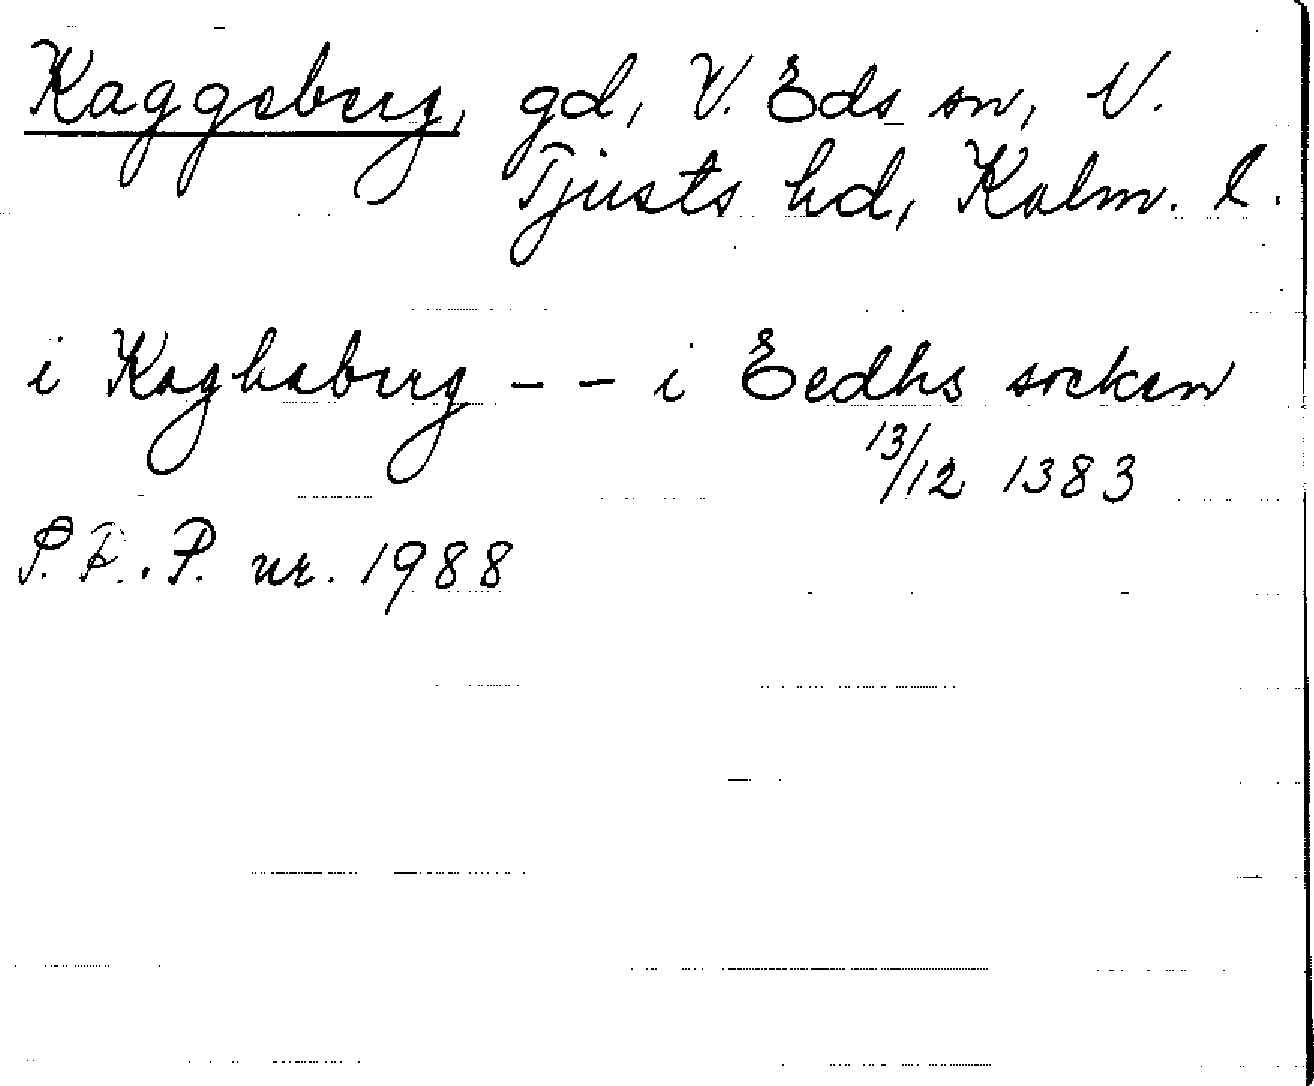 Kaggeberg, gd, V. Eds sn, N.
Tjusts hd, Kalm. l.
i Kaghaberg - - i Eedhs sokken
13/12 1383
S. R. P. nr. 1988